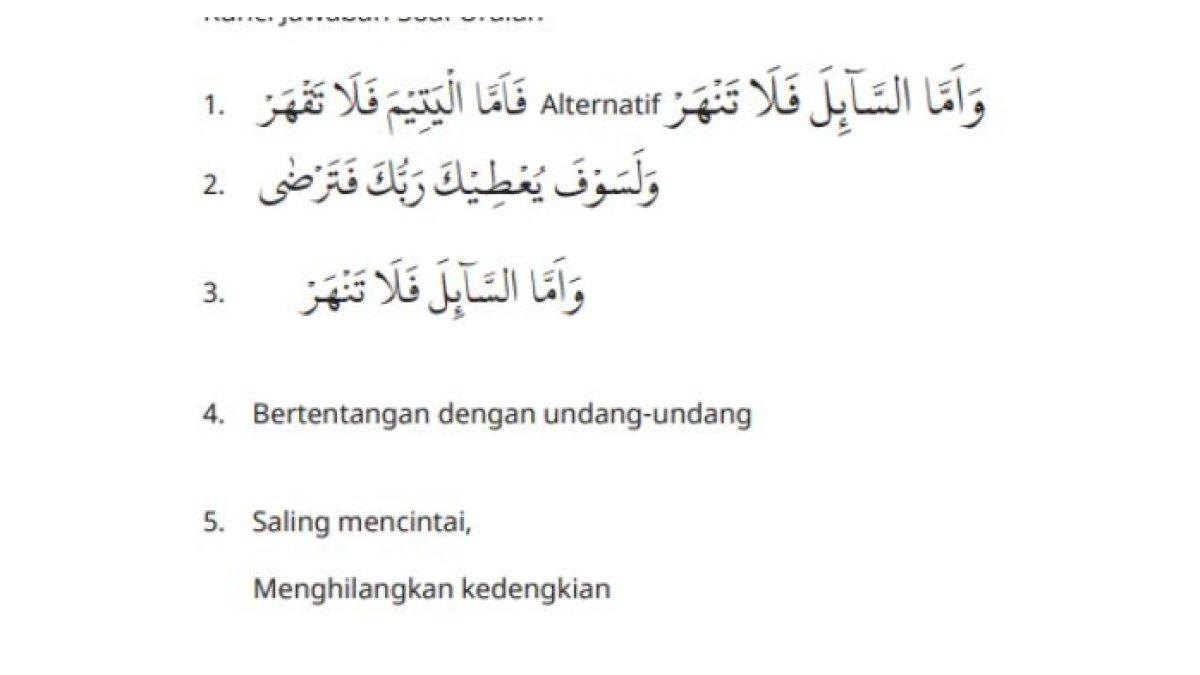 Kunci Jawaban Soal Uraian
1. فَاَمَّا الْيَتِيْمَ فَلَا تَقْهَرْ Alternatif وَاَمَّا السَّاۤىِٕلَ فَلَا تَنْهَرْ
2. وَلَسَوْفَ يُعْطِيْكَ رَبُّكَ فَتَرْضٰى
3. وَاَمَّا السَّاۤىِٕلَ فَلَا تَنْهَرْ
4. Bertentangan dengan undang-undang
5. Saling mencintai,
Menghilangkan kedengkian